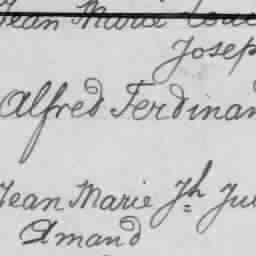 Jean Marie
Joseph
Alfred Ferdinan
Jean Marie Jh Ju
Amand